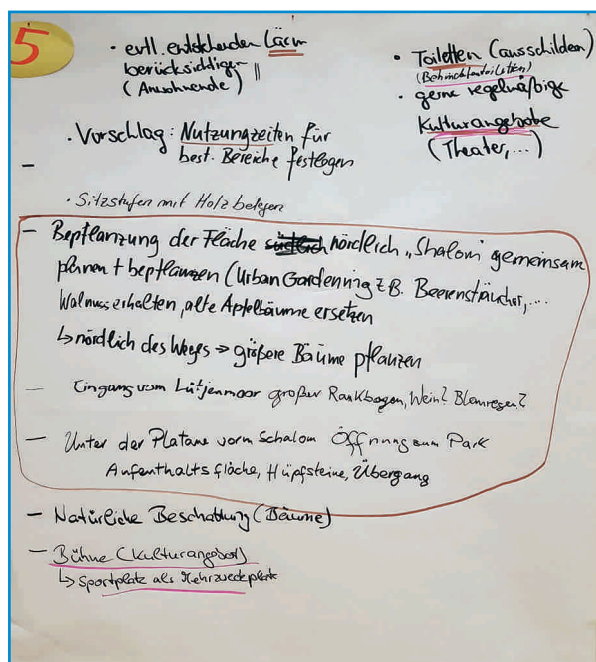 5
• evtl. entstehenden Lärm
berücksichtigen
(Anwohnende)
• Toiletten (ausschildern)
(Behindertentoiletten)
• gerne regelmäßige
Kulturangebote
(Theater,...)
• Vorschlag: Nutzungzeiten für
best. Bereiche festlegen
–
• Sitzstufen mit Holz belegen
– Bepflanzung der Fläche südlich nördlich „Shalom" gemeinsam
planen + bepflanzen (Urban Gardening z.B. Beerensträucher,...
Walnuss erhalten, alte Apfelbäume ersetzen
↳ nördlich des Weges → größere Bäume pflanzen
– Eingang vom Lütjenmoor großer Rankbogen, Wein?
– Unter der Platane vorm Schalom Öffnung zum Park
Aufenthaltsfläche, Hüpfsteine, Übergang
– Natürliche Beschattung (Bäume)
– Bühne (Kulturangebot)
↳ Sportplatz als Mehrzweckplatz